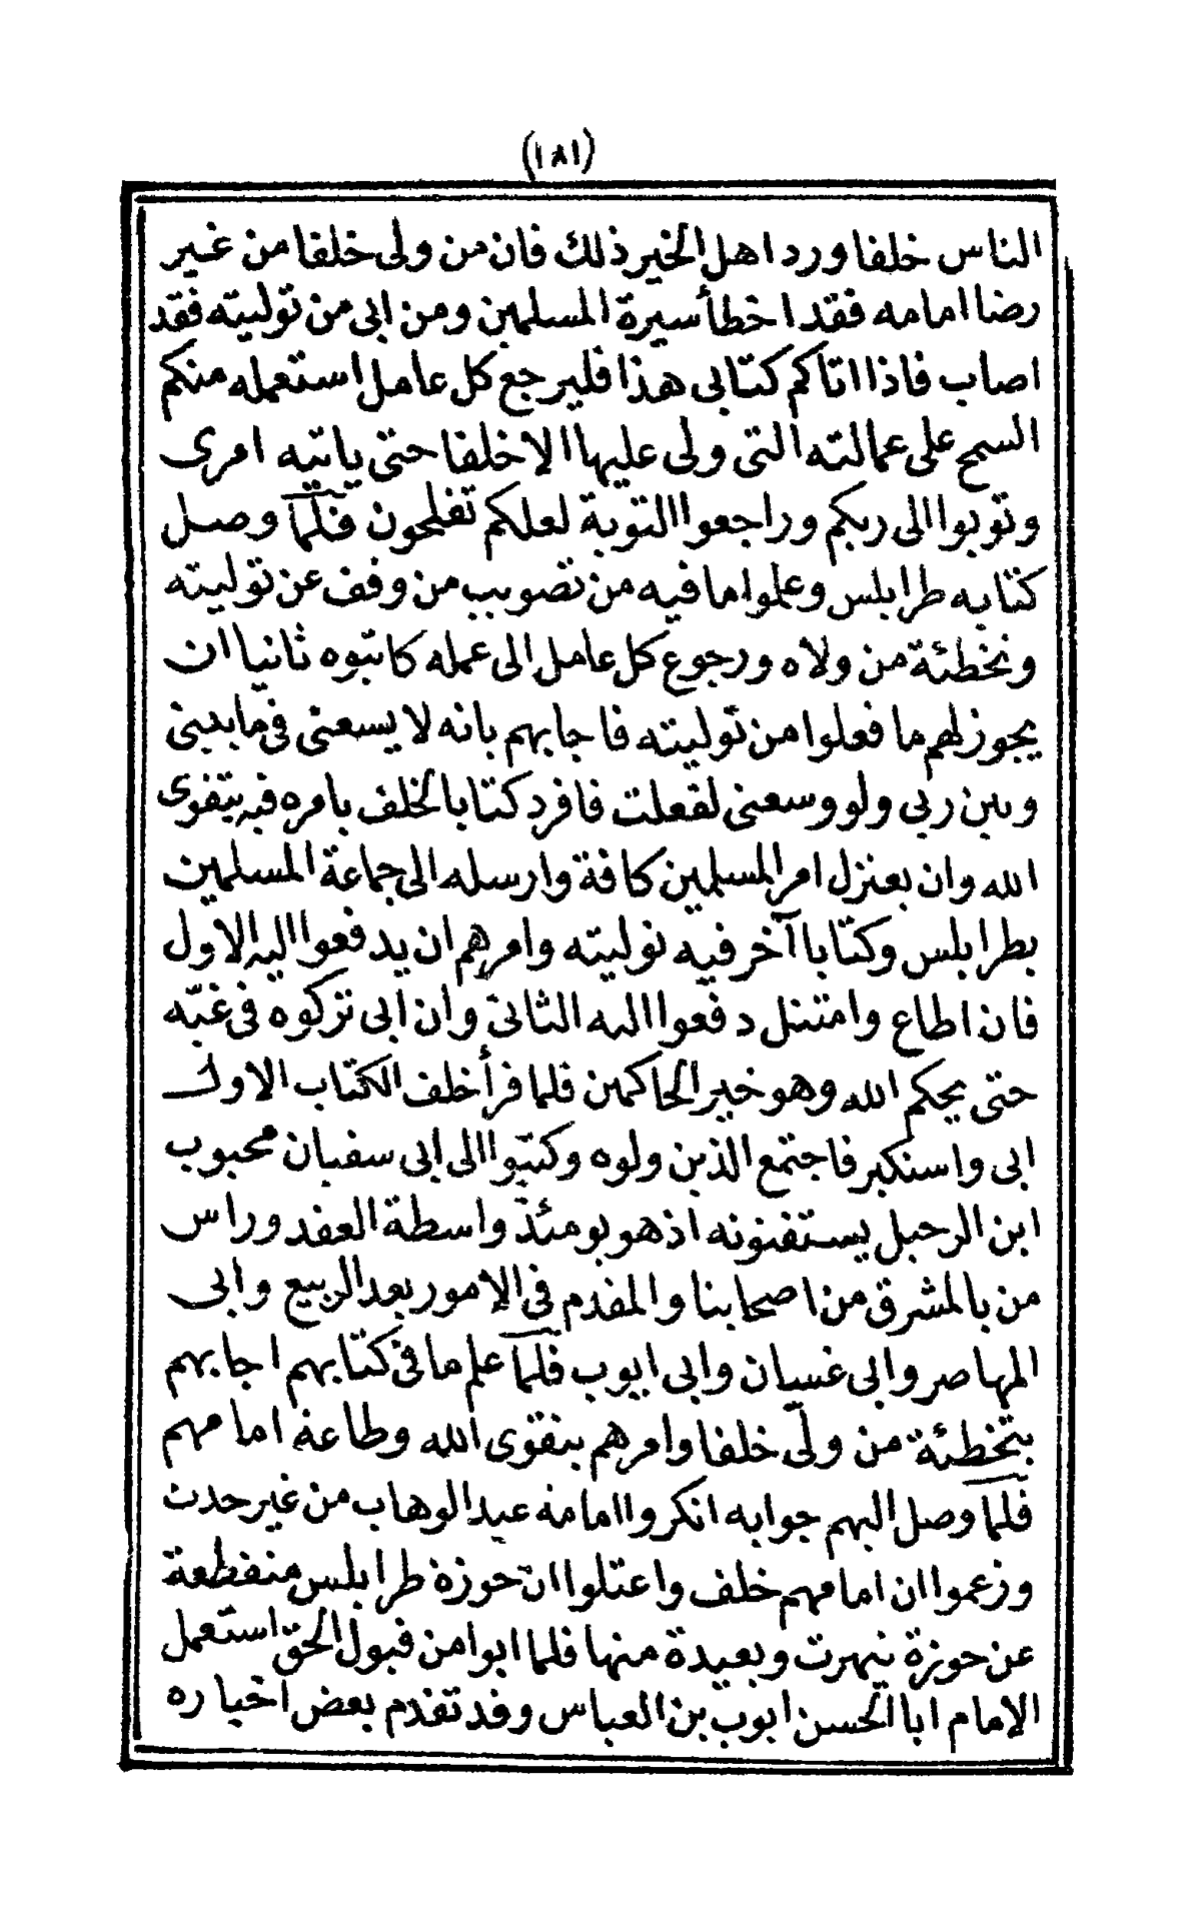 (١٨١)
الناس خلفا ورد اهل الخير ذلك فان من ولى خلفا من غير
رضا امامه فقد اخطأ سيرة المسلمين ومن ابى من توليته فقد
اصاب فاذا اتاكم كتابى هذا فليرجع كل عامل استعمله منكم
السمح على عمالته التى ولى عليها الا خلفا حتى ياتيه امرى
وتوبوا الى ربكم وراجعوا التوبة لعلكم تفلحون فلمّا وصل
كتابه طرابلس وعلموا ما فيه من تصويب من وقف عن توليته
وتخطئة من ولاه ورجوع كل عامل الى عمله كاتبوه ثانيا ان
يجوز لهم ما فعلوا من توليته فاجابهم بانه لا يسعنى فى ما بينى
وبين ربى ولو وسعنى لفعلت فافرد كتابا لخلف يامره فيه بتقوى
الله وان يعتزل امر المسلمين كافة وارسله الى جماعة المسلمين
بطرابلس وكتابا آخر فيه توليته وامرهم ان يدفعوا اليه الاول
فان اطاع وامتثل دفعوا اليه الثانى وان ابى تركوه فى غيّه
حتى يحكم الله وهو خير الحاكمين فلما قرأ خلف الكتاب الاول
ابى واستكبر فاجتمع الذين ولوه وكتبوا الى ابى سفيان محبوب
ابن الرحيل يستفتونه اذ هو يومئذ واسطة العقد وراس
من بالمشرق من اصحابنا والمقدم فى الامور بعد الربيع وابى
المهاصر وابى غسان وابى ايوب فلمّا علم ما فى كتابهم اجابهم
بتخطئة من ولّى خلفا وامرهم بتقوى الله وطاعة امامهم
فلمّا وصل اليهم جوابه انكروا امامة عبد الوهاب من غير حدث
وزعموا ان امامهم خلف واعتلوا ان حوزة طرابلس منقطعة
عن حوزة تيهرت وبعيدة منها فلما ابوا من قبول الحق استعمل
الامام ابا الحسن ايوب بن العباس وقد تقدم بعض اخباره